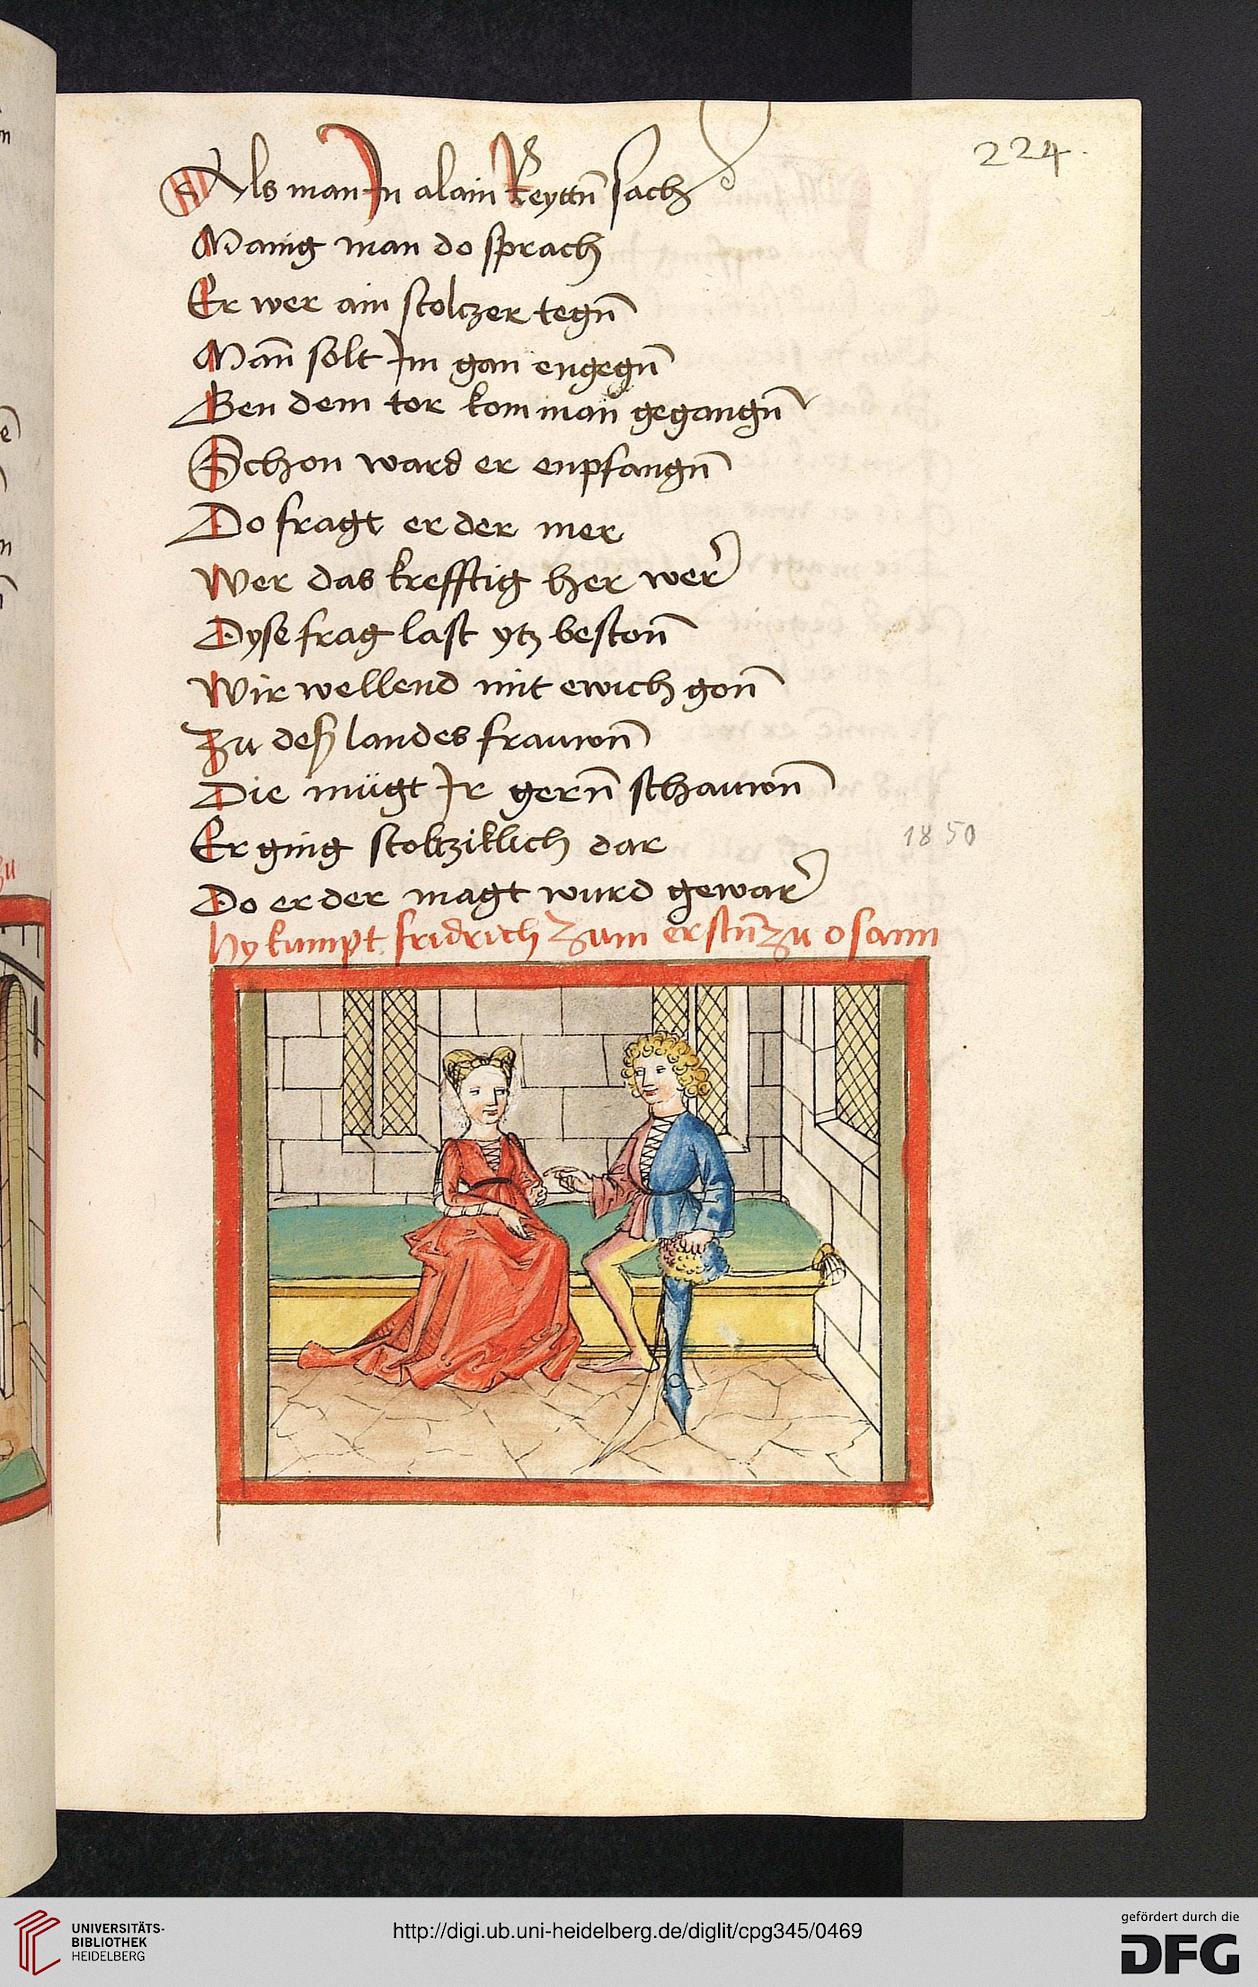 224.
Als man In alain Reyttn̄ sach
Manig man do sprach
Er wer ain stolczer tegn̄
Man̄ solt Im gan engegn̄
Ben dem tor kom man gegangn̄
Schon ward er enpfangn̄
Do fragt er der mer
Wer das krefftig her wer
Dyse frag last ytz beston̄
Wir wellend mit ewich gon̄
Zu deß landes frauwn̄
Die mügt Ir gern̄ schauwn̄
Er ging stoltziklich dar
1850
Do er der magt wurd gewar
Hy kumpt fridrich zum erstn̄ zu osann
zu
UNIVERSITÄTS-
BIBLIOTHEK
HEIDELBERG
http://digi.ub.uni-heidelberg.de/diglit/cpg345/0469
gefördert durch die
DFG